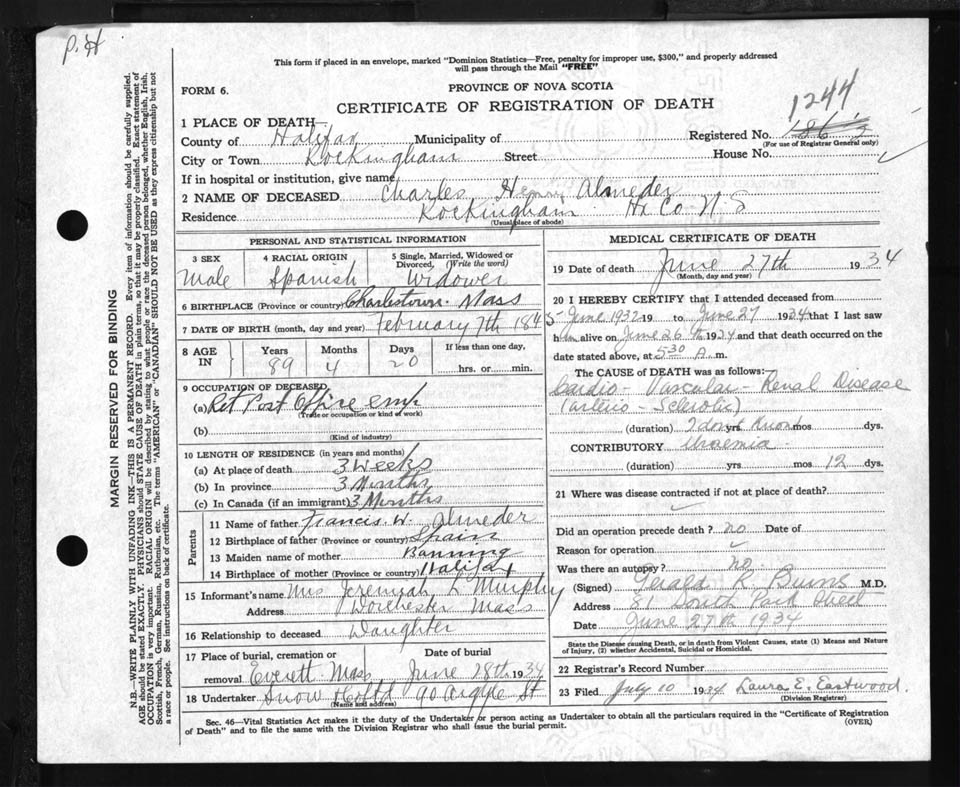 P.H
This form if placed in an envelope, marked "Dominion Statistics—Free, penalty for improper use, $300," and properly addressed
will pass through the Mail "FREE"
FORM 6.
PROVINCE OF NOVA SCOTIA
CERTIFICATE OF REGISTRATION OF DEATH
1244
1 PLACE OF DEATH—
County of Halifax Municipality of Registered No.
(For use of Registrar General only)
City or Town Rockingham Street House No.
If in hospital or institution, give name
2 NAME OF DECEASED Charles Henry Almeder
Residence Rockingham Hx Co N S
(Usual place of abode)
PERSONAL AND STATISTICAL INFORMATION
3 SEX 4 RACIAL ORIGIN 5 Single, Married, Widowed or
Divorced, (Write the word)
Male Spanish Widower
6 BIRTHPLACE (Province or country) Charlestown Mass
7 DATE OF BIRTH (month, day and year) February 7th 1845
8 AGE IN Years Months Days If less than one day,
89 4 20 hrs. or min.
9 OCCUPATION OF DECEASED
(a) Ret Post Office emp
(Trade or occupation or kind of work)
(b)
(Kind of industry)
10 LENGTH OF RESIDENCE (in years and months)
(a) At place of death 3 Weeks
(b) In province 3 Months
(c) In Canada (if an immigrant) 3 Months
Parents
11 Name of father Francis W. Almeder
12 Birthplace of father (Province or country) Spain
13 Maiden name of mother Banning
14 Birthplace of mother (Province or country) Halifax
15 Informant's name Mrs Jeremiah L Murphy
Address Dorchester Mass
16 Relationship to deceased Daughter
17 Place of burial, cremation or Date of burial
removal Everett Mass June 28th 1934
18 Undertaker Snow Co Ltd 90 Argyle St
(Name and address)
MEDICAL CERTIFICATE OF DEATH
19 Date of death June 27th 1934
(Month, day and year)
20 I HEREBY CERTIFY that I attended deceased from
June 1932 19 to June 27 1934 that I last saw
h im alive on June 26 th 1934 and that death occurred on the
date stated above, at 5 30 A. m.
The CAUSE OF DEATH was as follows:
Cardio - Vascular - Renal Disease
(arterio - Sclerotic)
(duration) yrs. mos dys.
CONTRIBUTORY Uraemia
(duration) yrs mos 12 dys.
21 Where was disease contracted if not at place of death?
Did an operation precede death ? no Date of
Reason for operation
Was there an autopsy ? no
(Signed) Gerald R Burns M.D.
Address 81 South Park Street
Date June 27th 1934
State the Disease causing Death, or in death from Violent Causes, state (1) Means and Nature
of Injury, (2) whether Accidental, Suicidal or Homicidal.
22 Registrar's Record Number
23 Filed July 10 1934 Laura E. Eastwood.
(Division Registrar)
Sec. 46—Vital Statistics Act makes it the duty of the Undertaker or person acting as Undertaker to obtain all the particulars required in the "Certificate of Registration
of Death" and to file the same with the Division Registrar who shall issue the burial permit.
(OVER)
MARGIN RESERVED FOR BINDING
N.B.—WRITE PLAINLY WITH UNFADING INK—THIS IS A PERMANENT RECORD. Every item of information should be carefully supplied.
AGE should be stated EXACTLY. PHYSICIANS should STATE CAUSE OF DEATH in plain terms, so that it may be properly classified. Exact statement of
OCCUPATION is very important. RACIAL ORIGIN will be described by stating to what people or race the deceased person belonged, whether English, Irish,
Scottish, French, German, Russian, Ruthenian, etc. The terms "AMERICAN" or "CANADIAN" SHOULD NOT BE USED as they express citizenship but not
a race or people. See instructions on back of certificate.